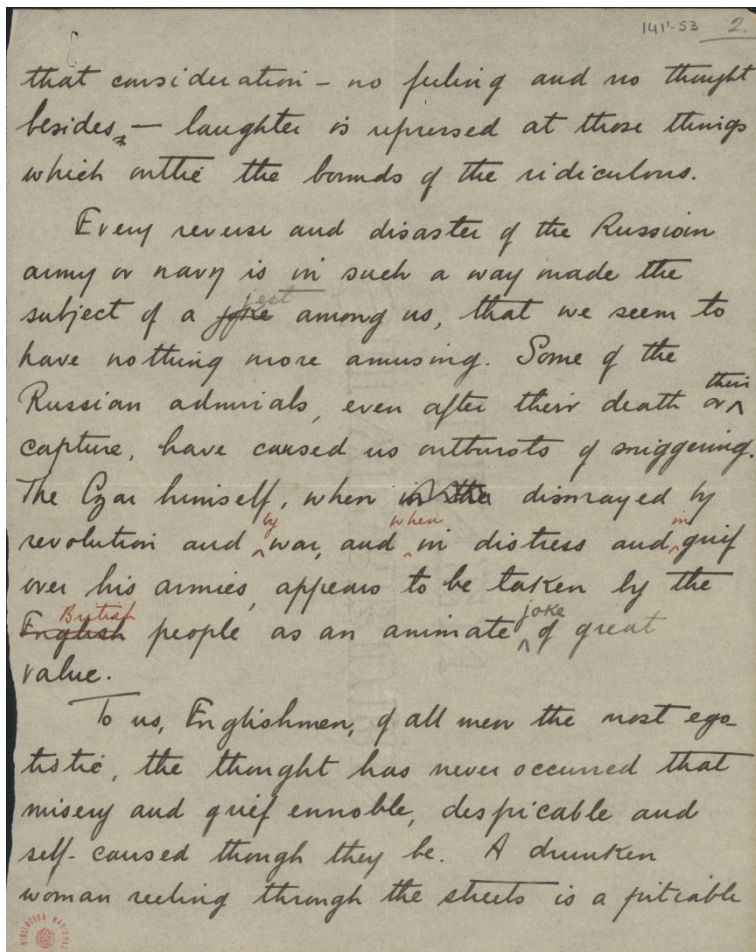 141¹-53 2.
that consideration – no feeling and no thought
besides, – laughter is repressed at those things
which outlie the bounds of the ridiculous.
Every reverse and disaster of the Russian
army or navy is in such a way made the
subject of a joke jest among us, that we seem to
have nothing more amusing. Some of the
Russian admirals, even after their death or their
capture, have caused us outbursts of sniggering.
The Czar himself, when in the dismayed by
revolution and by war, and when in distress and in grief
over his armies, appears to be taken by the
English British people as an animate joke of great
value.
To us, Englishmen, of all men the most ego-
tistic, the thought has never occurred that
misery and grief ennoble, despicable and
self-caused though they be. A drunken
woman reeling through the streets is a pitiable
BIBLIOTECA NACIONAL